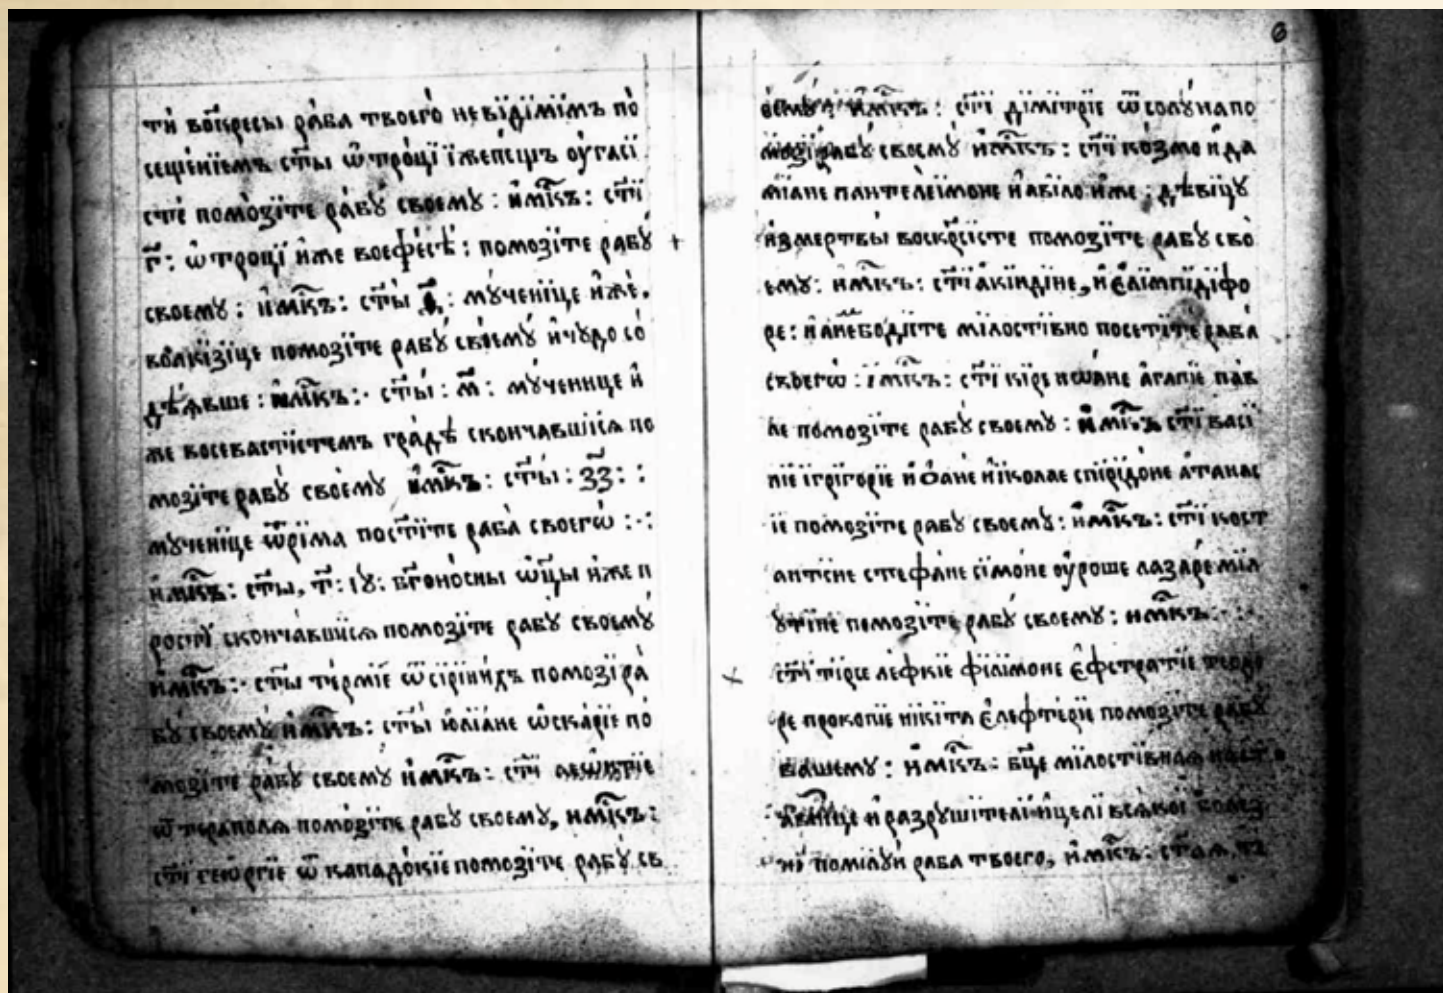 ти вꙁскресы раба твоего невїдїмїмъ по
сещенїемъ ст҃ы ѡтроцї їжепещъ оугасї
сте помозїте рабꙋ своемꙋ : и҆м҃къ : ст҃ї
г҃ : ѡтроцї иже воефесѣ : помозїте рабꙋ
своемꙋ : и҆м҃къ : ст҃ы : мꙋченїце иже
помозїте рабꙋ своемꙋ ичꙋдо со
дѣꙗвше : и҆м҃къ : ст҃ы : м҃ : мꙋченице и
же восевастїстемъ градѣ скончавшїсѧ по
мозїте рабꙋ своемꙋ и҆м҃къ : ст҃ы :
мꙋченїце ѿрїма посⷮїте раба своегѡ :
и҆м҃къ : ст҃ы, т҃ : їꙋ : бг҃оносны ѡц҃ы иже п
ростꙋ скончавшїсѧ помозїте рабꙋ своемꙋ
и҆м҃къ : ст҃ы термїе помозї ра
бꙋ своемꙋ и҆м҃къ : ст҃ы юлїане ѡскарїе по
мозїте рабꙋ своемꙋ и҆м҃къ : ст҃ї леѡнтїе
ѿ терапола помозїте рабꙋ своемꙋ, и҆м҃къ :
ст҃ї геѡргїе ѿ кападокїе помозїте рабꙋ св
6
оемꙋ : и҆м҃къ : ст҃ї дїмїтрїе ѿ солꙋна по
мозї рабꙋ своемꙋ и҆м҃къ : ст҃ї козмо и да
мїане пантелеїмоне и авїло иже : дѣвїцꙋ
измертвы воскр҃сїсте помозїте рабꙋ сво
емꙋ : и҆м҃къ : ст҃ї акїндїне, и єлїмпїдїфо
ре : и мїлостївно посетїте раба
своегѡ : їм҃къ : ст҃ї кїре иѡане агапїе пав
ле помозїте рабꙋ своемꙋ : и҆м҃къ ст҃ї васї
лїе їгрїгорїе и ѻане нїколае спїрїдоне атанас
їе помозїте рабꙋ своемꙋ : и҆м҃къ : ст҃ї кост
антїне стефане сїмоне оуроше лазаре мїл
ꙋтїне помозїте рабꙋ своемꙋ : и҆м҃къ :
ст҃ї тїрсе лефкїе фїлїмоне єфстратїе теодо
ре прокопїе нїкїта єлефтерїе помозїте рабꙋ
вашемꙋ : и҆м҃къ : бц҃е мїлостївнаѧ наст
авнїце и разрꙋшїтелї ицелї всѧкої болез
нї помїлꙋи раба твоего, и҆м҃къ : ст҃аѧ